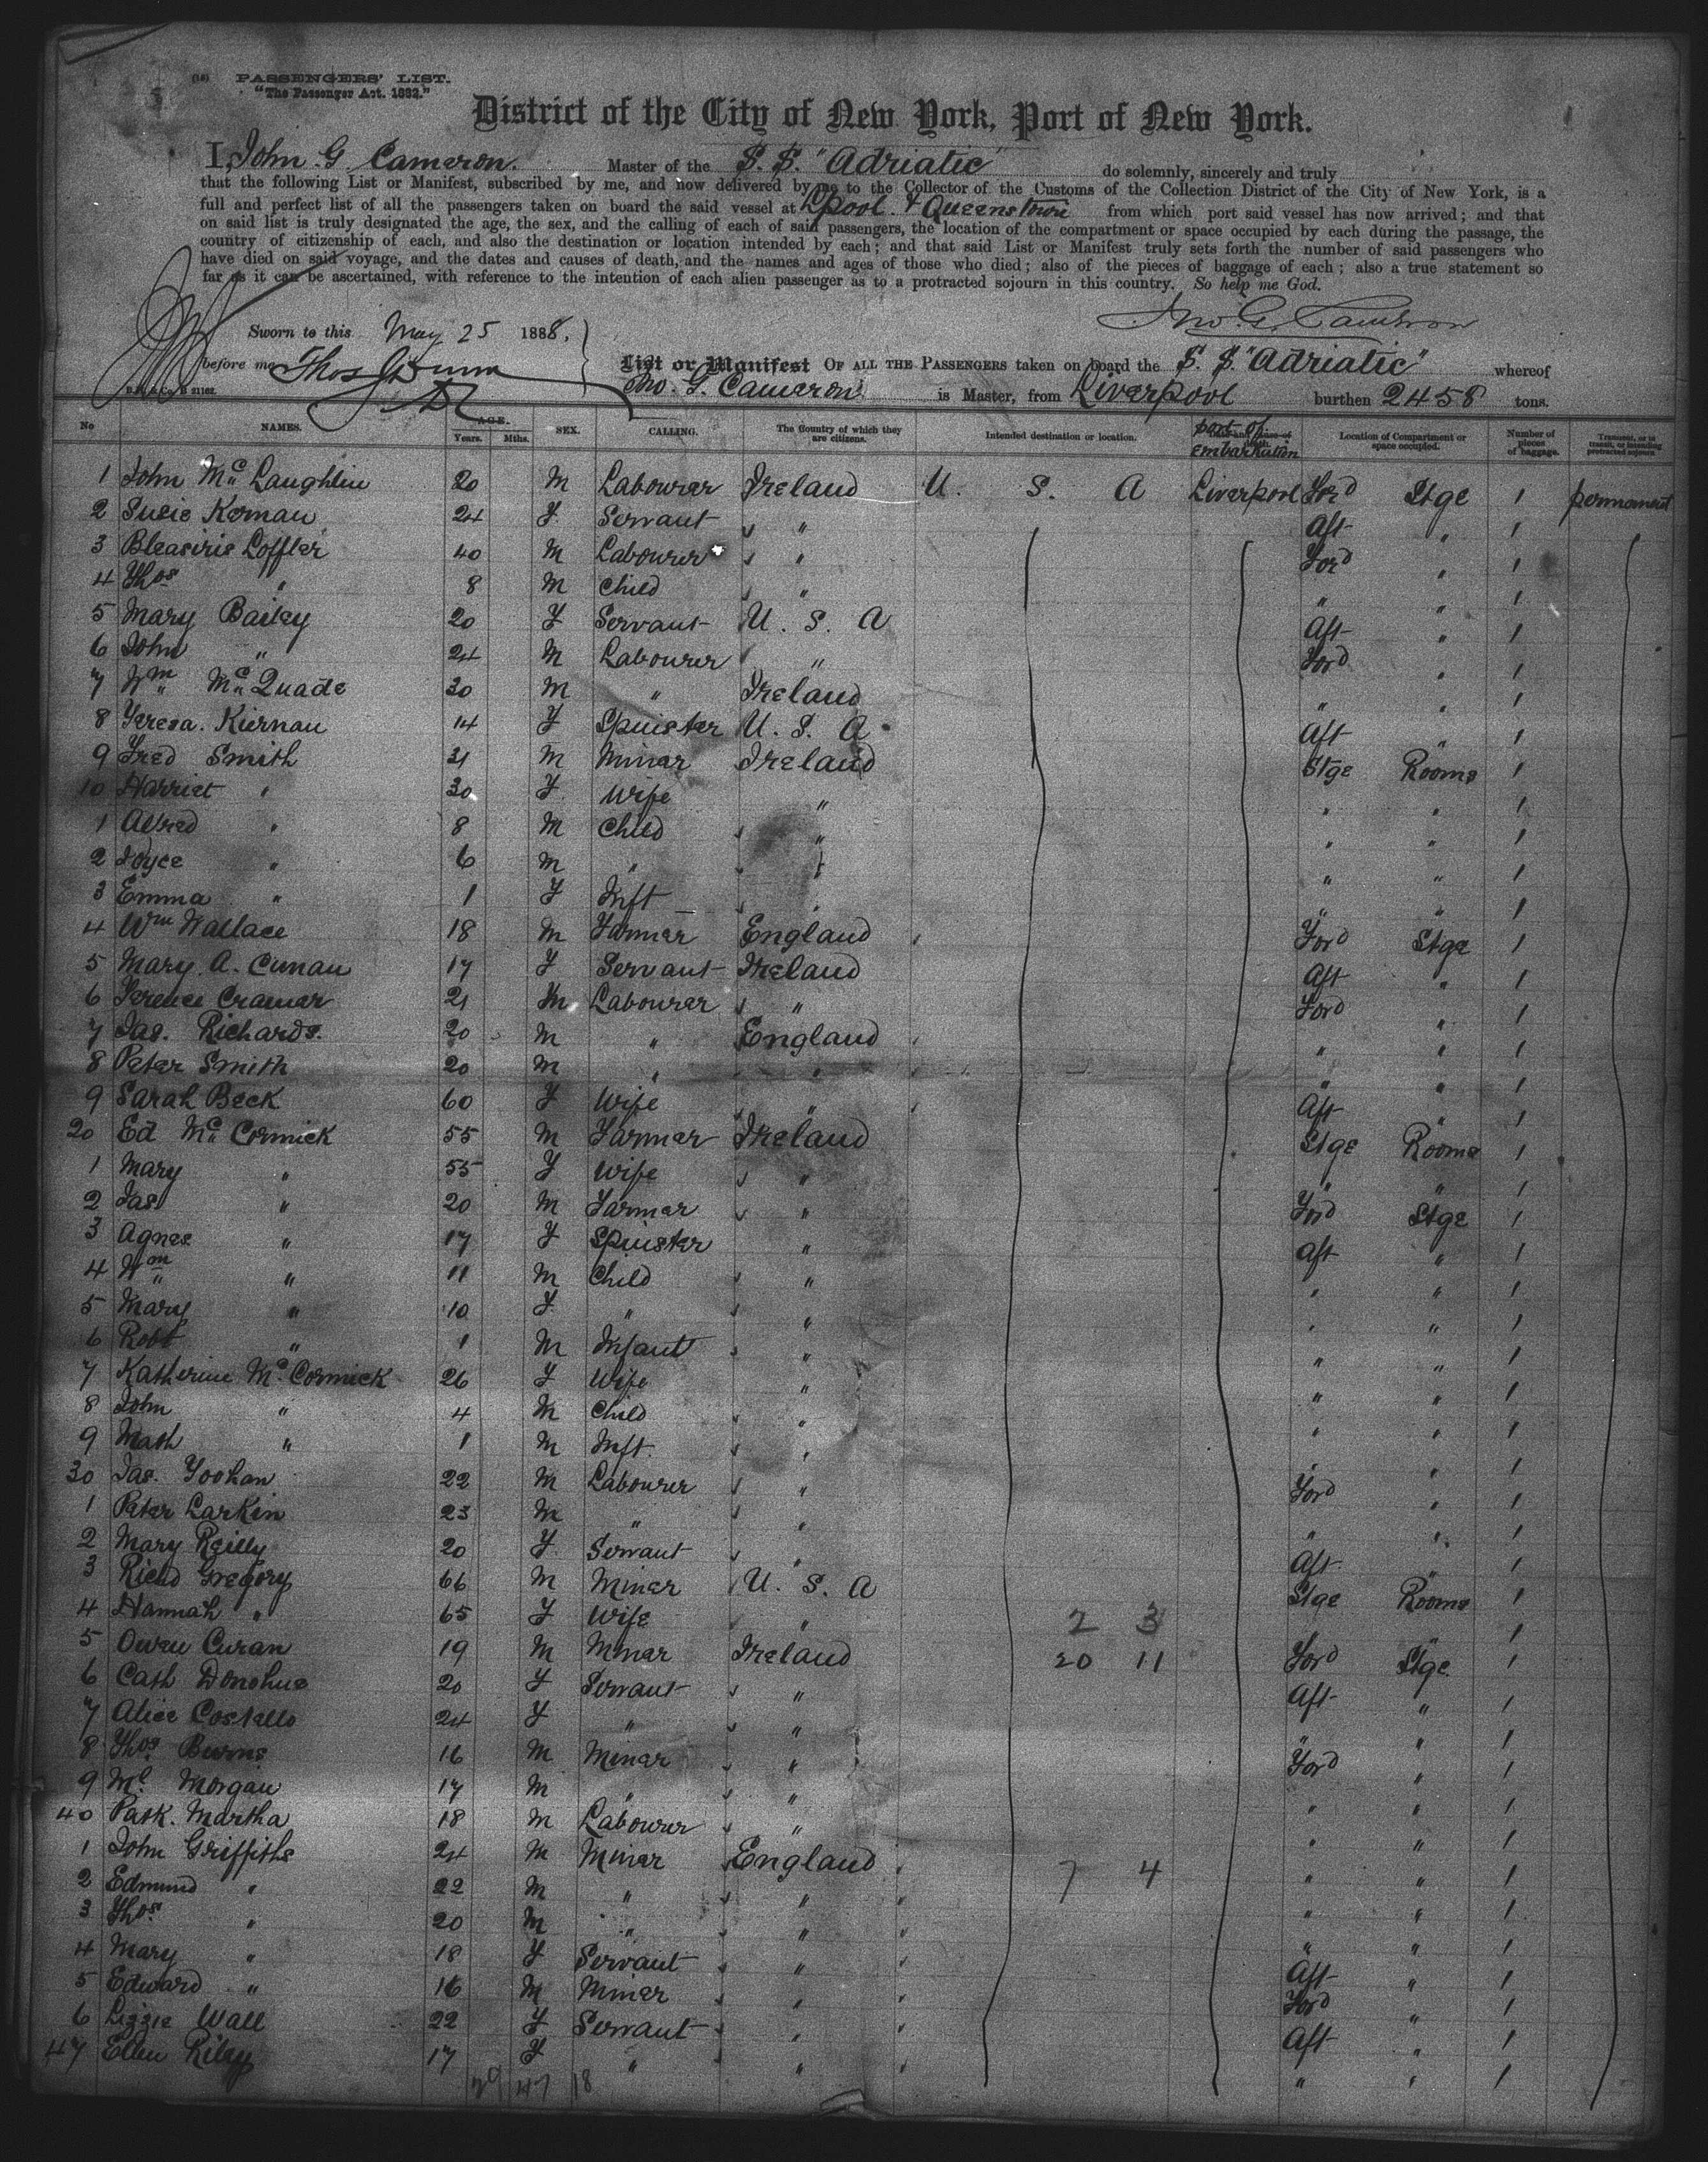 (16) PASSENGERS' LIST.
"The Passenger Act. 1882."
District of the City of New York, Port of New York.
I, John G. Cameron. Master of the S. S. "Adriatic" do solemnly, sincerely and truly
that the following List or Manifest, subscribed by me, and now delivered by me to the Collector of the Customs of the Collection District of the City of New York, is a
full and perfect list of all the passengers taken on board the said vessel at Lpool. & Queenstown from which port said vessel has now arrived; and that
on said list is truly designated the age, the sex, and the calling of each of said passengers, the location of the compartment or space occupied by each during the passage, the
country of citizenship of each, and also the destination or location intended by each; and that said List or Manifest truly sets forth the number of said passengers who
have died on said voyage, and the dates and causes of death, and the names and ages of those who died; also of the pieces of baggage of each; also a true statement so
far as it can be ascertained, with reference to the intention of each alien passenger as to a protracted sojourn in this country. So help me God.
Jno. G. Cameron
Sworn to this May 25 1888.
before me Thos Dunn
List or Manifest OF ALL THE PASSENGERS taken on board the S. S. "Adriatic" whereof
Jno. G. Cameron is Master, from Liverpool burthen 2458 tons.
No NAMES. AGE. Years. Mths. SEX. CALLING. The Country of which they are citizens. Intended destination or location. port of Embarkation Location of Compartment or space occupied. Number of pieces of baggage. Transient, or in transit, or intending protracted sojourn
1 John Mc Laughlin 20 M Labourer Ireland U. S. A Liverpool Ford Stge 1 permanent
2 Susie Kernan 24 F Servant " Aft " 1
3 Bleasiris Loffler 40 M Labourer " Ford " 1
4 Thos " 8 M Child " " " 1
5 Mary Bailey 20 F Servant U. S. A Aft " 1
6 John " 24 M Labourer " Ford " 1
7 Wm Mc Quade 30 M " Ireland " " 1
8 Teresa. Kiernan 14 F Spinster U. S. A Aft " 1
9 Fred Smith 31 M Miner Ireland Stge Rooms 1
10 Harriet " 30 F Wife " " " 1
1 Alfred " 8 M Child " " " 1
2 Joyce " 6 M " " " " 1
3 Emma " 1 F Inft " " " 1
4 Wm Wallace 18 M Farmer England Ford Stge 1
5 Mary. A. Cunan 17 F Servant Ireland Aft " 1
6 Terence Cramer 21 M Labourer " Ford " 1
7 Jas. Richards. 20 M " England " " 1
8 Peter Smith 20 M " " " " 1
9 Sarah Beck 60 F Wife " Aft " 1
20 Ed Mc Cormick 55 M Farmer Ireland Stge Rooms 1
1 Mary " 55 F Wife " " " 1
2 Jas " 20 M Farmer " Ford Stge 1
3 Agnes " 17 F Spinster " Aft " 1
4 Wm " 11 M Child " " " 1
5 Mary " 10 F " " " " 1
6 Robt " 1 M Infant " " " 1
7 Katherine Mc Cormick 26 F Wife " " " 1
8 John " 4 M Child " " " 1
9 Math " 1 M Inft. " " " 1
30 Jas. Toohan 22 M Labourer " Ford " 1
1 Peter Larkin 23 M " " " " 1
2 Mary Reilly 20 F Servant " Aft " 1
3 Richd Gregory 66 M Miner U. S. A Stge Rooms 1
4 Hannah " 65 F Wife " 2 3 " 1
5 Owen Curan 19 M Miner Ireland 20 11 Ford Stge 1
6 Cath Donohue 20 F Servant " Aft " 1
7 Alice Costello 24 F " " " " 1
8 Thos Burns 16 M Miner " Ford " 1
9 Ml. Morgan 17 M " " " " 1
40 Patk. Martha 18 M Labourer " " " 1
1 John Griffiths 24 M Miner England 7 4 " " 1
2 Edmund " 22 M " " " " 1
3 Thos. " 20 M " " " " 1
4 Mary " 18 F Servant " Aft " 1
5 Edward " 16 M Miner " Ford " 1
6 Lizzie Wall 22 F Servant " Aft " 1
47 Ellen Riley 17 F " " " " 1
29 47 18